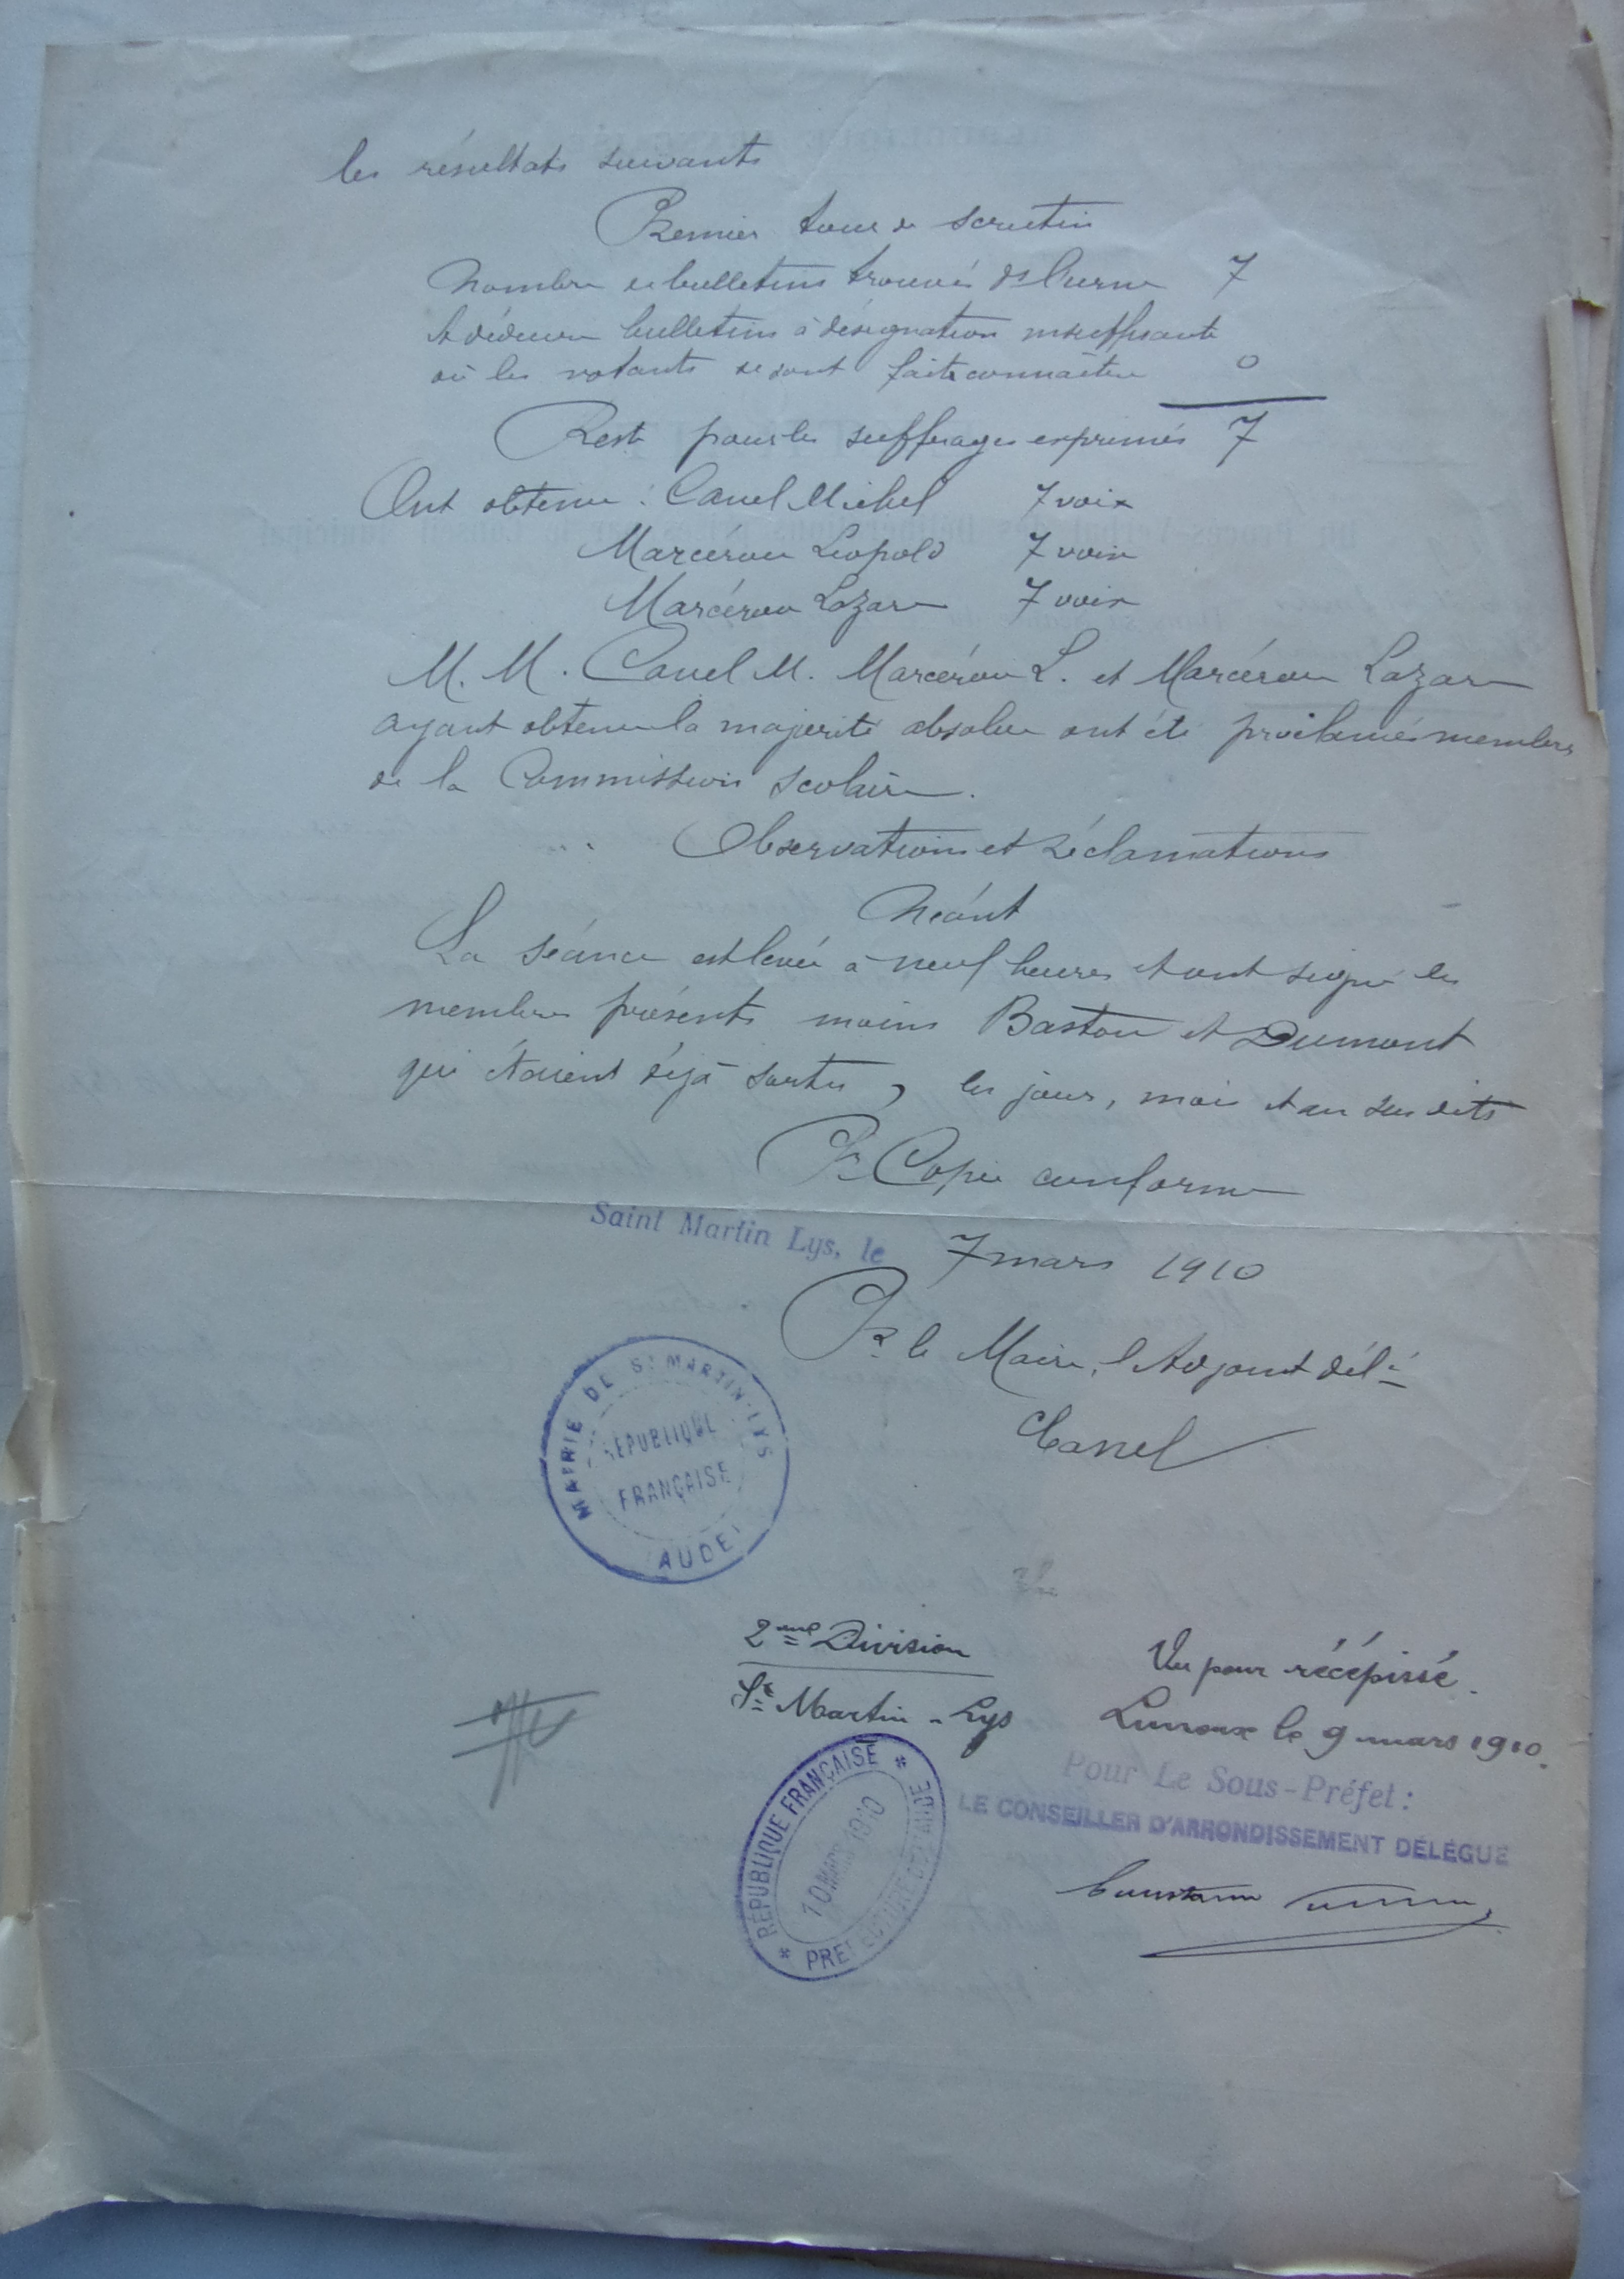 les résultats suivants
Premier tour de scrutin
Nombre de bulletins trouvés ds l'urne 7
A déduire bulletins à désignation insuffisante
où les votants se sont faits connaître 0
Reste pour les suffrages exprimés 7
Ont obtenu : Canel Michel 7 voix
Marcérou Léopold 7 voix
Marcérou Lazare 7 voix
M. M. Canel M. Marcérou L. et Marcérou Lazare
ayant obtenu la majorité absolue ont été proclamés membres
de la Commission scolaire.
Observations et Réclamations
Néant
La séance est levée à neuf heures et ont signé les
membres présents moins Bastou et Dumont
qui étaient déjà sortis, les jour, mois et an susdits
Pr Copie conforme
Saint Martin Lys, le 7 mars 1910
Pr le Maire, l'Adjoint délé
Canel
MAIRIE DE St MARTIN-LYS
RÉPUBLIQUE
FRANÇAISE
(AUDE)
2me Division
St Martin-Lys
Vu pour récépissé.
Limoux le 9 mars 1910.
Pour Le Sous-Préfet :
LE CONSEILLER D'ARRONDISSEMENT DÉLÉGUÉ
* RÉPUBLIQUE FRANÇAISE *
10 MARS 1910
PREFECTURE DE L'AUDE